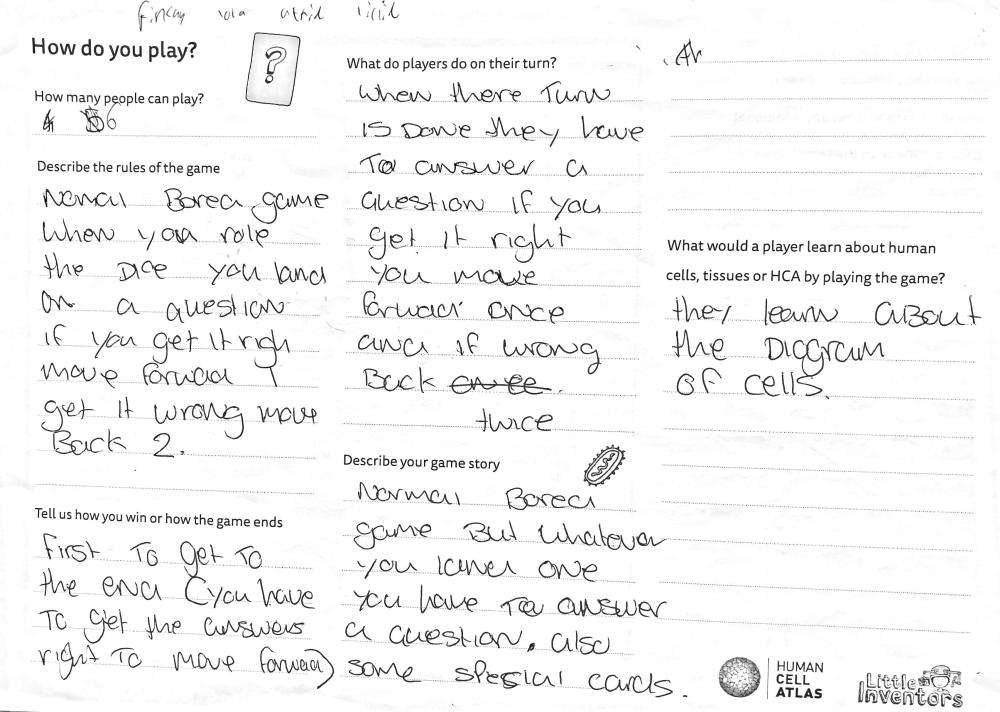 How do you play?
?
How many people can play?
6
Describe the rules of the game
Normal Bored game
when you role
the Dice you land
on a question
if you get it righ
move forwad 1
get it wrong move
Back 2.
Tell us how you win or how the game ends
first To get To
the end (you have
To get the answers
right To move forward)
What do players do on their turn?
when there Turn
Is Done they have
To answer a
question If you
get It right
you move
forward once
and If wrong
Back once.
twice
Describe your game story
Normal Bored
game But whatover
you land one
you have To answer
a question. also
some spesial cards.
What would a player learn about human
cells, tissues or HCA by playing the game?
they learn aBout
the Diagram
OF cells.
HUMAN
CELL
ATLAS
Little
Inventors